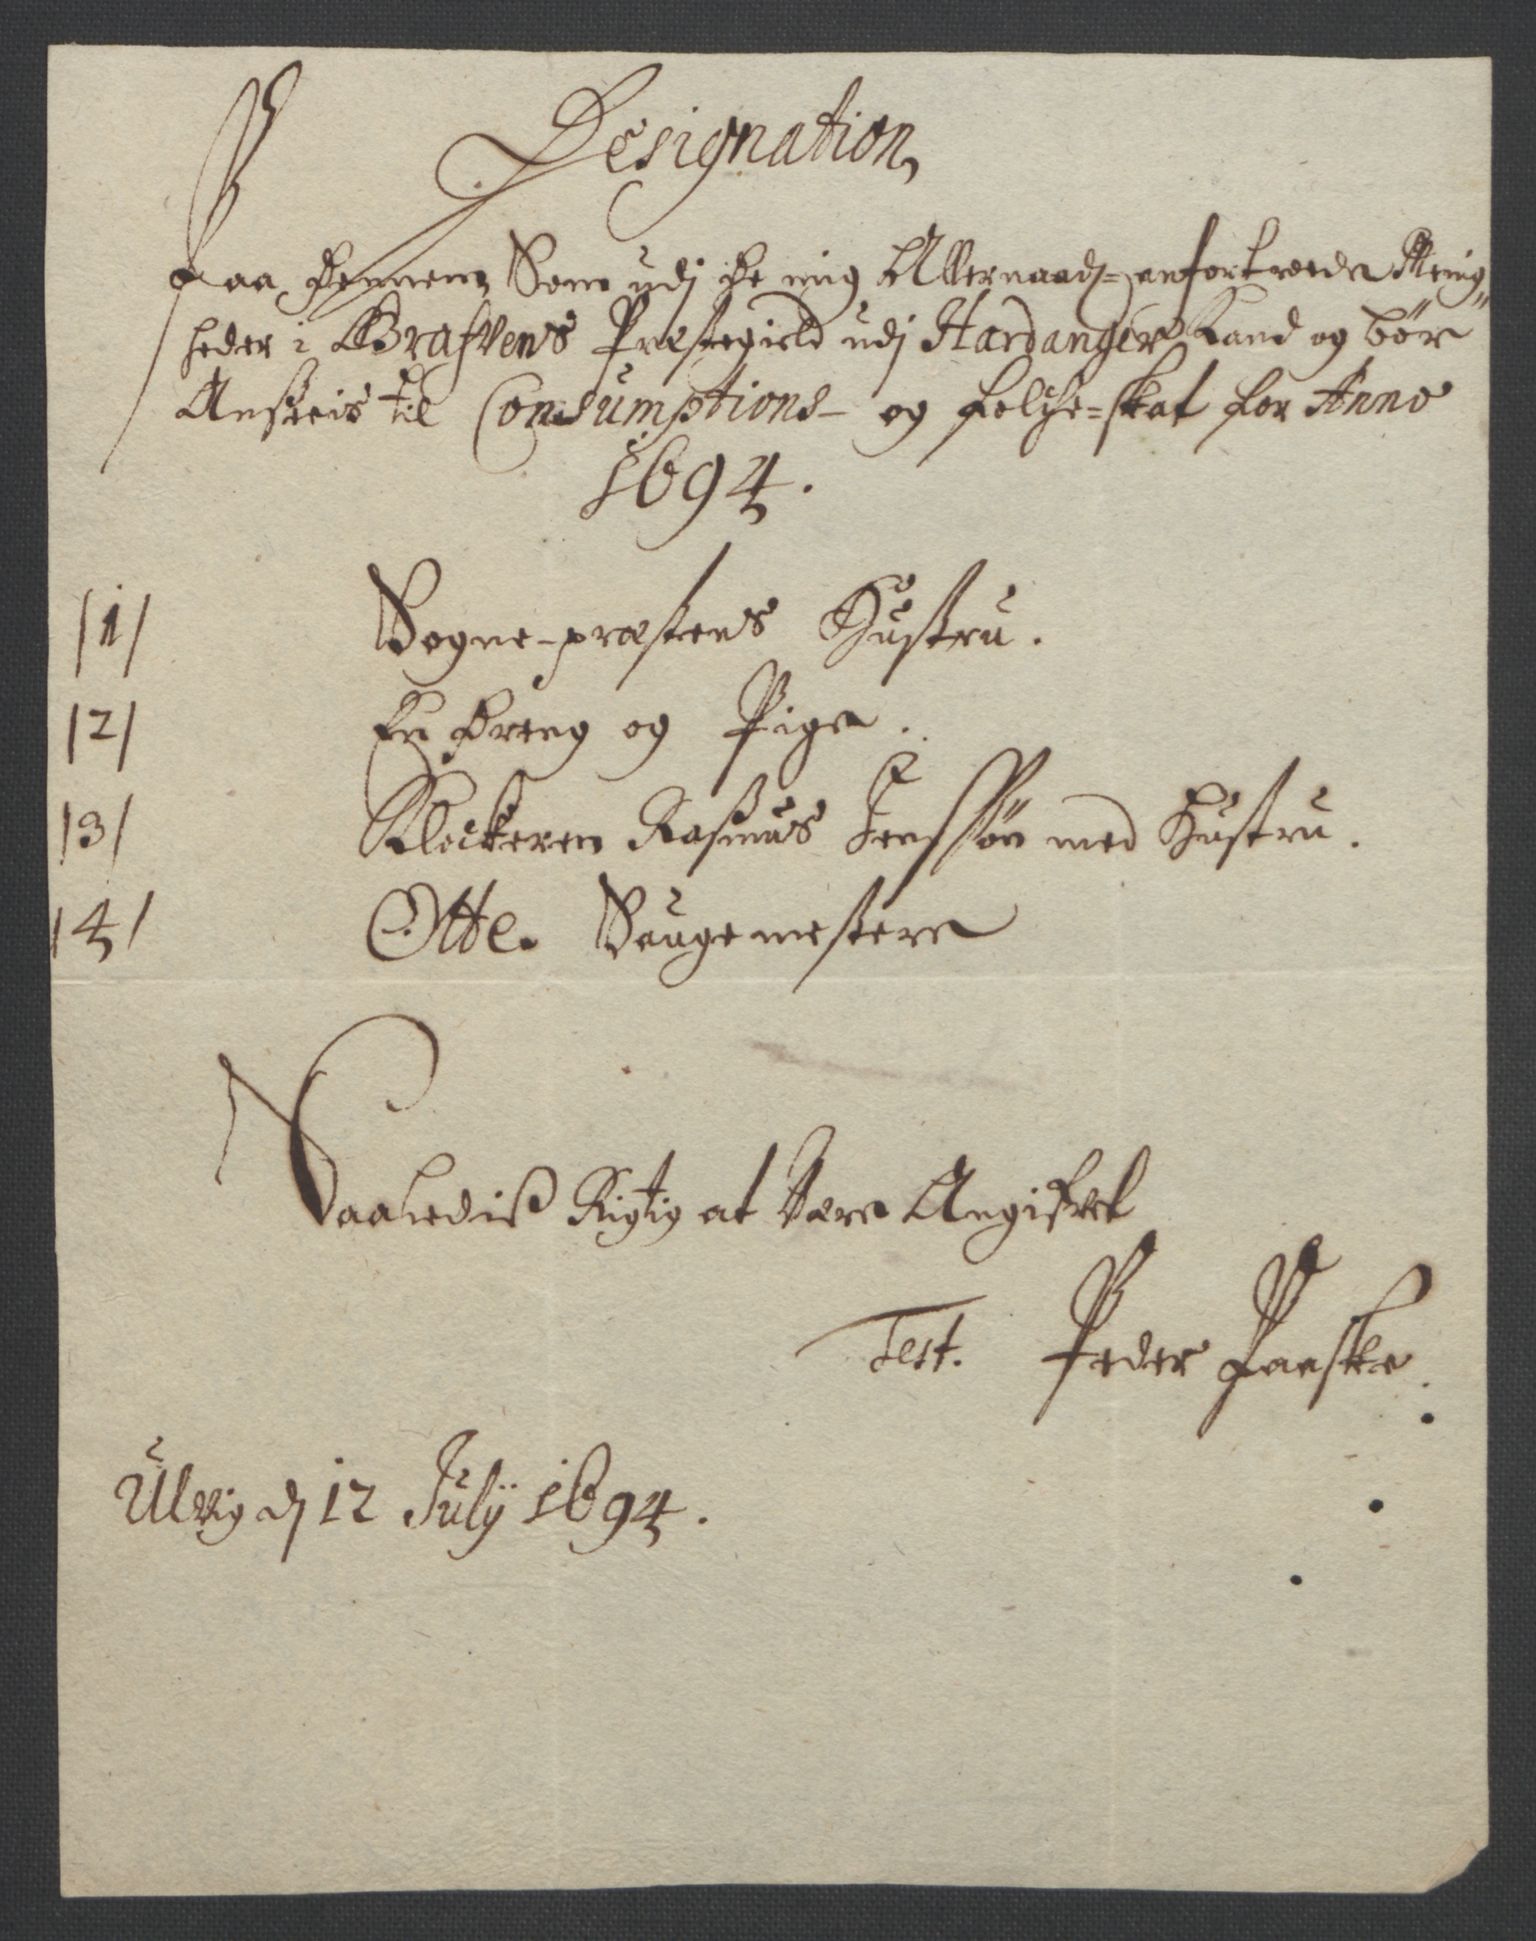 Designation
Paa dennem Som udj de mig Allernaadj= anfortroede Menig„
heder i Grafvens Præstegield udj Hardanger Kand og bör
Ansees til Consumptions- og folche=skat for Anno
1694.
/1/ Sogne-præstens Hustru.
/2/ En dreng og Pige.
/3/ Klockeren Rasmus Jenssön med Hustru.
/4/ Otte Saugemestere
Saaledis Rigtig at Være Angifvet
Test. Peder Paaske.
Ulvig dj 12 Julij 1694.